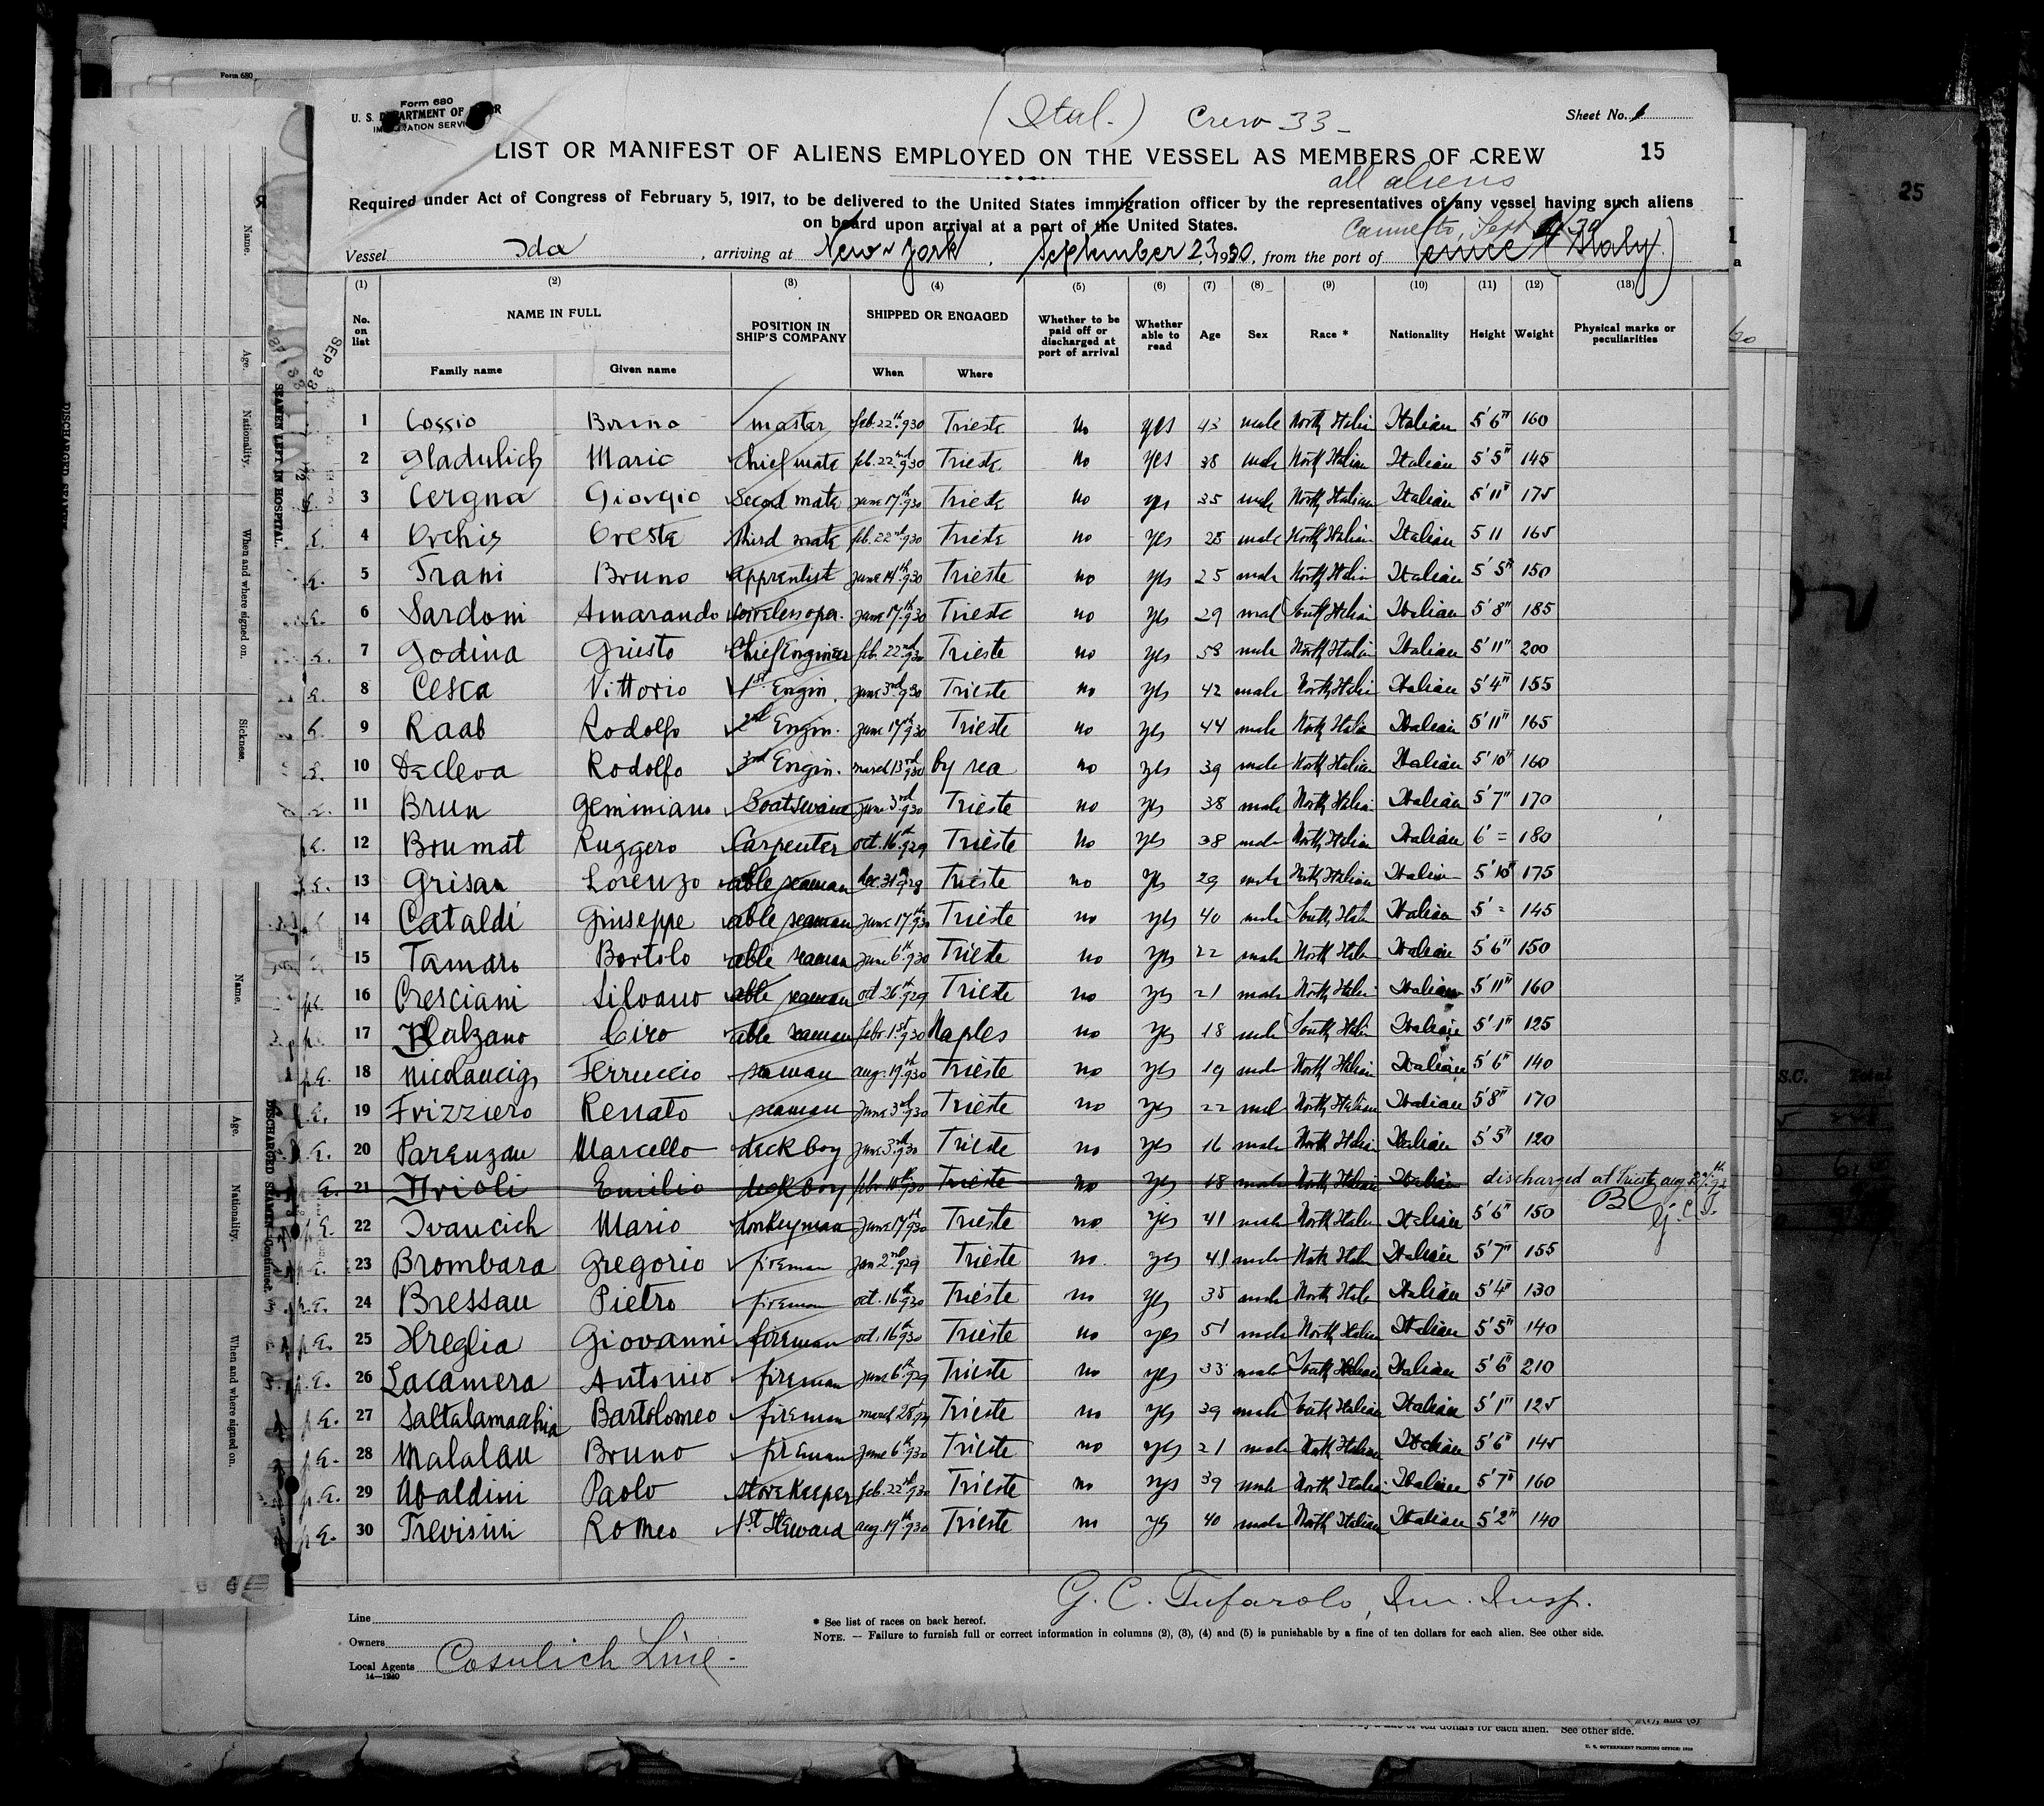 Form 680
Form 680
U. S. DEPARTMENT OF LABOR
IMMIGRATION SERVICE
(Ital.) Crew 33 -
Sheet No. 1
LIST OR MANIFEST OF ALIENS EMPLOYED ON THE VESSEL AS MEMBERS OF CREW
15
all aliens
Required under Act of Congress of February 5, 1917, to be delivered to the United States immigration officer by the representatives of any vessel having such aliens
on board upon arrival at a port of the United States.
Vessel Ida , arriving at New York , September 23, 1930, from the port of Venice (Italy)
(1) (2) (3) (4) (5) (6) (7) (8) (9) (10) (11) (12) (13)
No. on list NAME IN FULL Family name Given name POSITION IN SHIP'S COMPANY SHIPPED OR ENGAGED When Where Whether to be paid off or discharged at port of arrival Whether able to read Age Sex Race * Nationality Height Weight Physical marks or peculiarities
1 Cossio Bruno master feb. 22th 930 Trieste No yes 43 male North Italian Italian 5'6" 160
2 Gladulich Mario Chief mate feb. 22nd 930 Trieste No yes 38 male North Italian Italian 5'5" 145
3 Cergna Giorgio Second mate june 17th 930 Trieste No yes 35 male North Italian Italian 5'11" 175
4 Orchis Oreste third mate feb. 22nd 930 Trieste no yes 28 male North Italian Italian 5 11 165
5 Trani Bruno apprentist june 14th 930 Trieste no yes 25 male North Italian Italian 5'5" 150
6 Sardoni Amarando wireless oper. june 17th 930 Trieste no yes 29 male South Italian Italian 5'8" 185
7 Godina Giusto Chief Engineer feb. 22nd 930 Trieste no yes 53 male North Italian Italian 5'11" 200
8 Cesca Vittorio 1st Engin. june 3rd 930 Trieste no yes 42 male North Italian Italian 5'4" 155
9 Raab Rodolfo 2nd Engin. june 17th 930 Trieste no yes 44 male North Italian Italian 5'11" 165
10 Decleva Rodolfo 3rd Engin. march 13rd 930 by sea no yes 39 male North Italian Italian 5'10" 160
11 Brun Geminiano Boatswain june 3rd 930 Trieste no yes 38 male North Italian Italian 5'7" 170
12 Brumat Ruggero Carpenter oct. 16th 929 Trieste No yes 38 male North Italian Italian 6' = 180
13 Grisan Lorenzo able seaman dec. 31 Trieste no yes 29 male North Italian Italian 5'10" 175
14 Cataldi Giuseppe able seaman june 17th 930 Trieste no yes 40 male South Italian Italian 5' = 145
15 Tamaro Bortolo able seaman june 6th 930 Trieste no yes 22 male North Italian Italian 5'6" 150
16 Cresciani Silvano able seaman oct 26th 929 Trieste no yes 21 male North Italian Italian 5'11" 160
17 Balzano Ciro able seaman febr. 1st 930 Naples no yes 18 male South Italian Italian 5'1" 125
18 Nicolaucig Ferruccio seaman aug. 19th 930 Trieste no yes 19 male North Italian Italian 5'6" 140
19 Frizziero Renato seaman june 3rd 930 Trieste no yes 22 male North Italian Italian 5'8" 170
20 Parenzan Marcello deck boy june 3rd 930 Trieste no yes 16 male North Italian Italian 5'5" 120
21 Emilio deck boy Trieste no yes 18 male North Italian Italian discharged at Trieste aug.
22 Ivancich Mario donkeyman june 17th 930 Trieste no yes 41 male North Italian Italian 5'6" 150
23 Brombara Gregorio fireman jan 2nd 929 Trieste no yes 41 male North Italian Italian 5'7" 155
24 Bressan Pietro fireman oct. 16th 930 Trieste no yes 35 male North Italian Italian 5'4" 130
25 Hreglia Giovanni fireman oct. 16th 930 Trieste no yes 51 male North Italian Italian 5'5" 140
26 Lacamera Antonio fireman june 6th 929 Trieste no yes 33 male South Italian Italian 5'6" 210
27 Saltalamachia Bartolomeo fireman march Trieste no yes 39 male South Italian Italian 5'1" 125
28 Malalan Bruno fireman june 6th 930 Trieste no yes 21 male North Italian Italian 5'6" 145
29 Ubaldini Paolo storekeeper feb. 22nd 930 Trieste no yes 39 male North Italian Italian 5'7" 160
30 Trevisini Romeo 1st Steward aug. 19th 930 Trieste no yes 40 male North Italian Italian 5'2" 140
G. C. Tufarolo, Im. Insp.
Line
* See list of races on back hereof.
Owners
NOTE. — Failure to furnish full or correct information in columns (2), (3), (4) and (5) is punishable by a fine of ten dollars for each alien. See other side.
Local Agents Cosulich Line -
14—1240
See other side.
U. S. GOVERNMENT PRINTING OFFICE
25
Name.
Age.
Nationality.
When and where signed on.
Sickness.
SEAMEN LEFT IN HOSPITAL.
Name.
Age.
Nationality.
When and where signed on.
DISCHARGED SEAMEN—Continued.